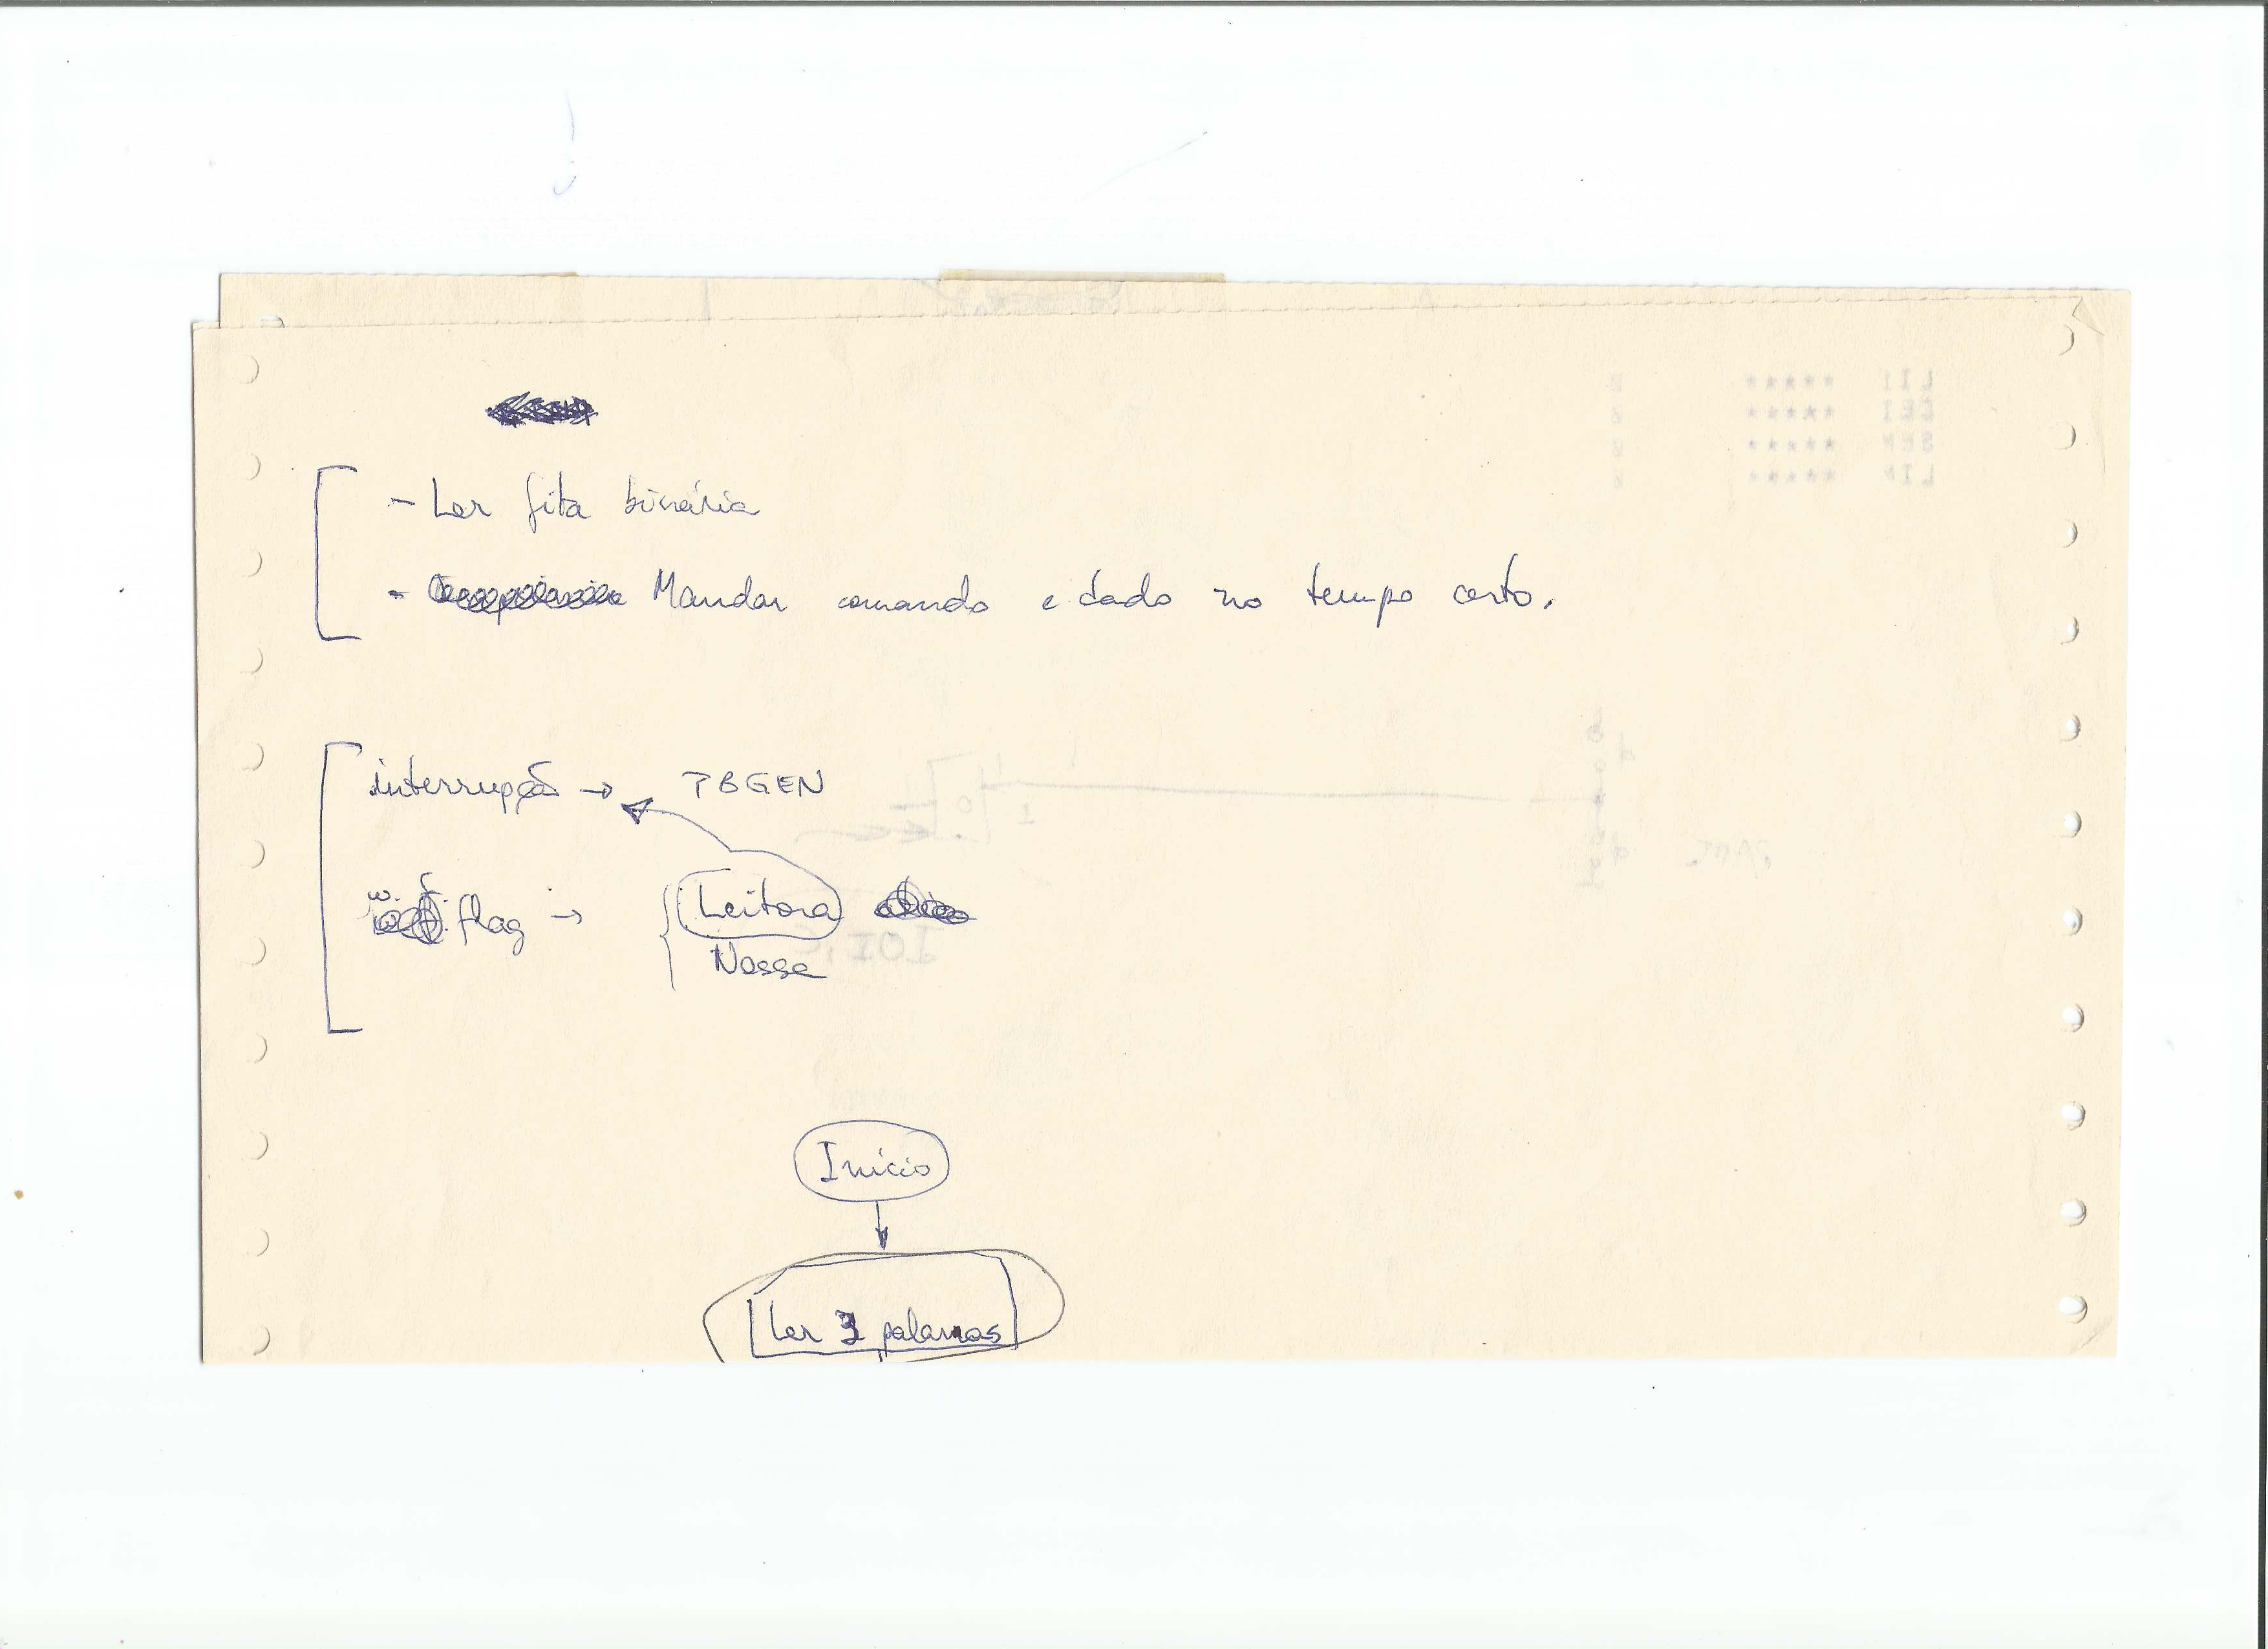 - Ler fita binária
- Mandar comando e dado no tempo certo.
interrupção → TBGEN
w. f. flag → Leitora
Nossa
Início
Ler 3 palavras